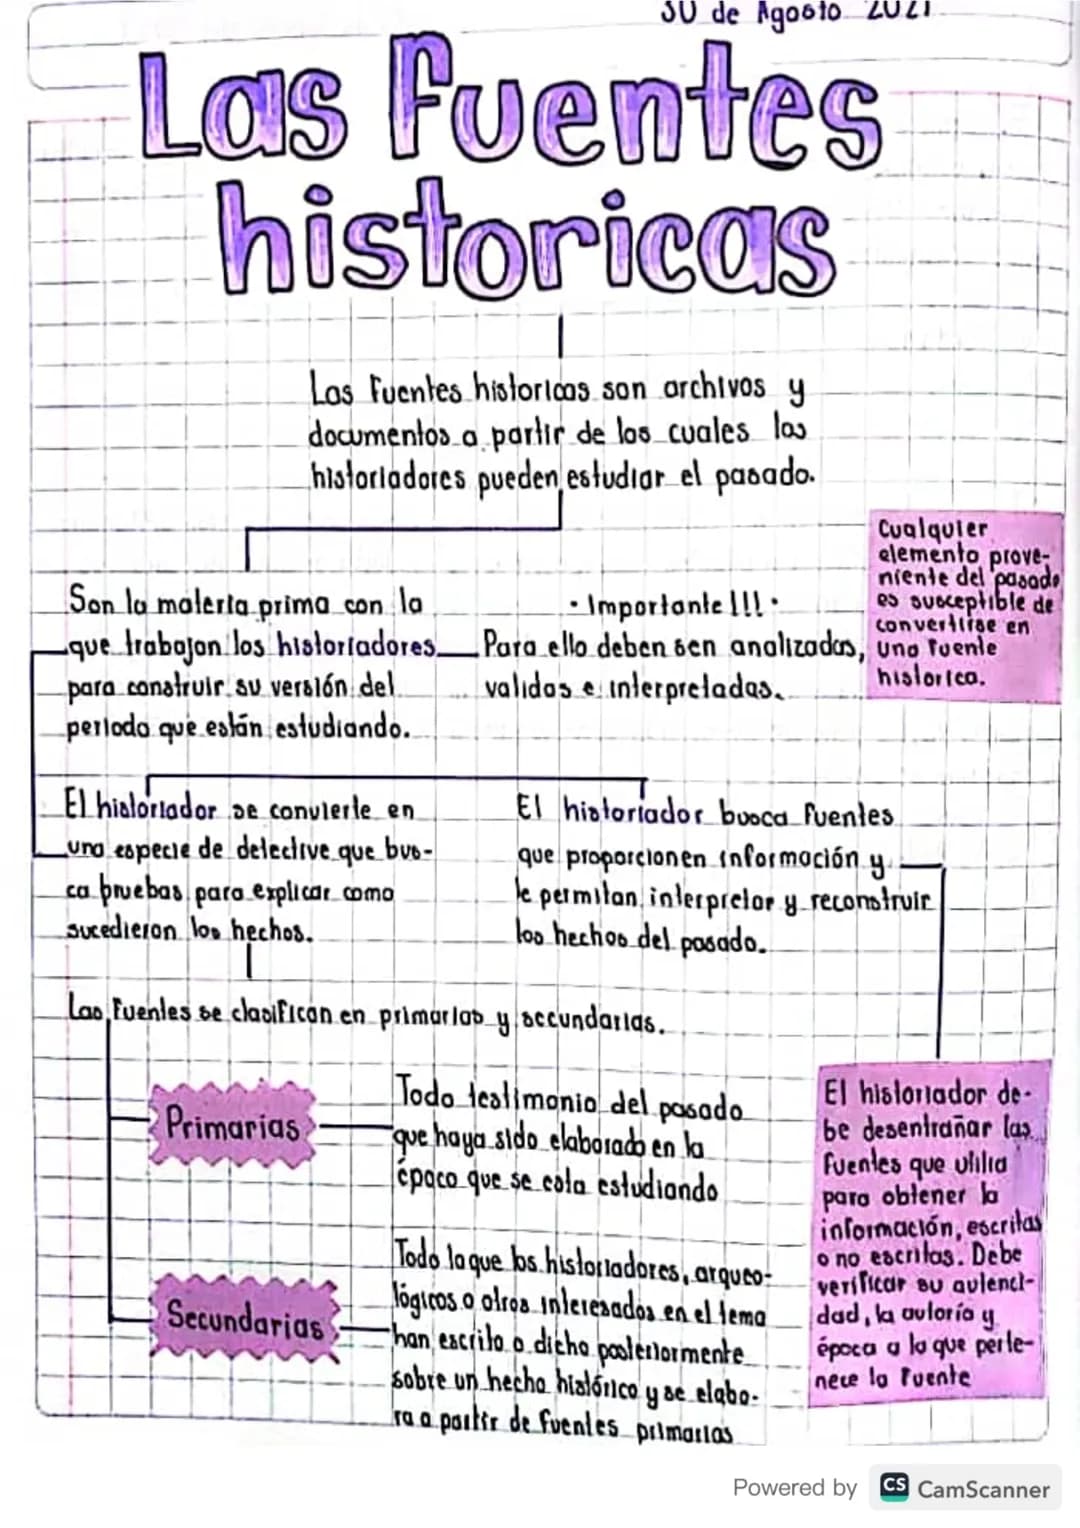 30 de Agosto 2021
Las fuentes
historicas
Las Fuentes historicas son archivos y
documentos a partir de los cuales los
historiadores pueden estudiar el pasado.
Cualquier
elemento prove-
niente del pasado
es susceptible de
convertirse en
una fuente
historica.
Son la materia prima con la
que trabajan los historiadores
para construir su versión del
periodo que están estudiando.
• Importante !!! •
Para ello deben sen analizadas,
validas e interpretadas.
El historiador se convierte en
una especie de detective que bus-
ca pruebas para explicar como
sucedieron los hechos.
El historiador busca fuentes
que proporcionen información y
le permitan interpretar y reconstruir
los hechos del pasado.
Las fuentes se clasifican en primarias y secundarias.
Primarias
Todo testimonio del pasado
que haya sido elaborado en la
época que se esta estudiando
Secundarias
Todo lo que los historiadores, arqueo-
lógicos o otros interesados en el tema
han escrito o dicho posteriormente
sobre un hecho histórico y se elabo-
ra a partir de fuentes primarias
El historiador de-
be desentrañar las
fuentes que utilia
para obtener la
información, escritas
o no escritas. Debe
verificar su autenci-
dad, la autoría y
época a la que perte-
nece la fuente
Powered by CS CamScanner